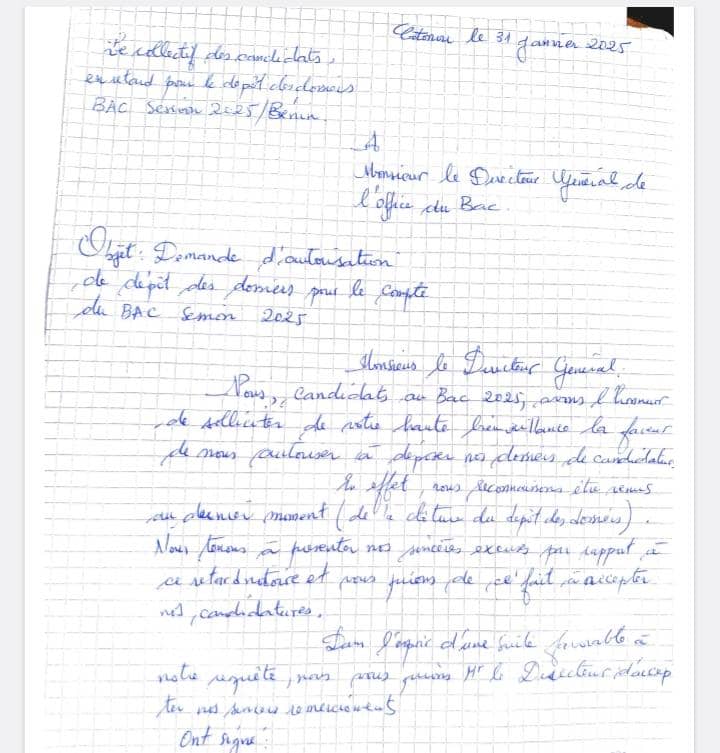 Cotonou le 31 janvier 2025
Le collectif des candidats,
en retard pour le dépôt des dossiers
BAC Session 2025/Bénin.
A
Monsieur le Directeur Général de
l'office du Bac.
Objet: Demande d'autorisation
de dépôt des dossiers pour le compte
du BAC Session 2025
Monsieur le Directeur Général.
Nous, candidats au Bac 2025, avons l'honneur
de solliciter de votre haute bienveillance la faveur
de nous autoriser à déposer nos dossiers de candidature.
En effet, nous reconnaissons être venus
au dernier moment (de la clôture du dépôt des dossiers).
Nous tenons à présenter nos sincères excuses par rapport à
ce retard notoire et vous prions, de ce fait, à accepter
nos candidatures.
Dans l'espoir d'une suite favorable à
notre requête, nous vous prions Mr le Directeur d'accep
ter nos sincères remerciements
Ont signé: